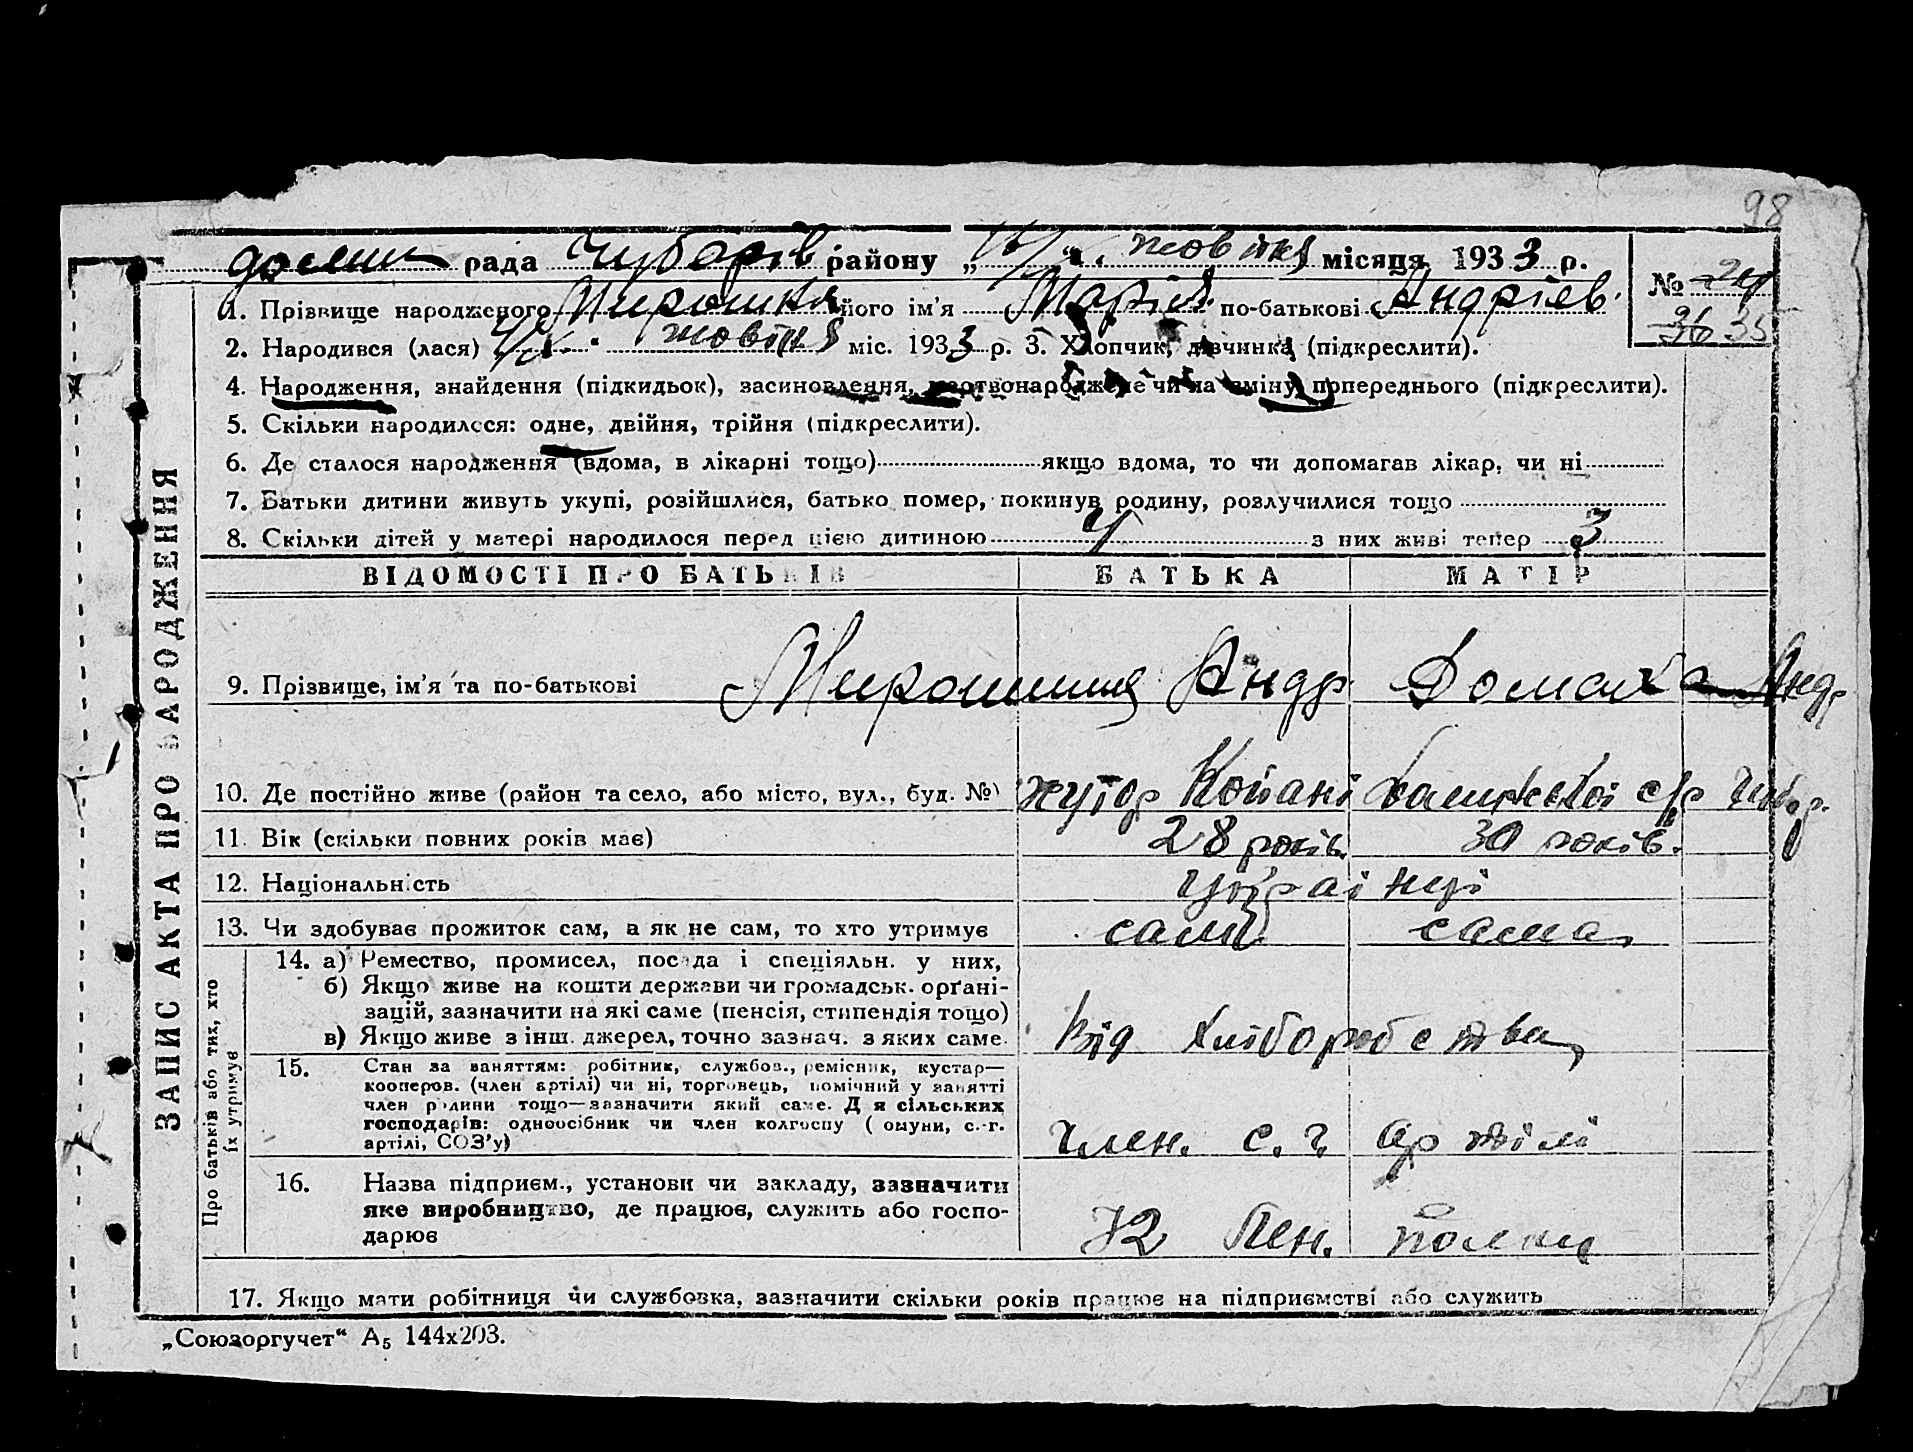 98
рада Чубарів району „ “ жовтня місяця 1933 р.
№
35
1. Прізвище народженого його ім'я Марія по-батькові Андріїв.
2. Народився (лася) жовтня міс. 1933 р. 3. Хлопчик, дівчинка (підкреслити).
4. Народження, знайдення (підкидьок), засиновлення, мертвонароджене чи на зміну попереднього (підкреслити).
5. Скільки народилося: одне, двійня, трійня (підкреслити).
6. Де сталося народження (вдома, в лікарні тощо) якщо вдома, то чи допомагав лікар, чи ні
7. Батьки дитини живуть укупі, розійшлися, батько помер, покинув родину, розлучилися тощо
8. Скільки дітей у матері народилося перед цією дитиною 4 з них живі тепер 3
ВІДОМОСТІ ПРО БАТЬКІВ БАТЬКА МАТІР
9. Прізвище, ім'я та по-батькові Андр. Домаха Андр
10. Де постійно живе (район та село, або місто, вул., буд. №) хутор с/р Чубар.
11. Вік (скільки повних років має) 28 років. 30 років.
12. Національність українці
13. Чи здобуває прожиток сам, а як не сам, то хто утримує сам сама
Про батьків або тих, хто їх утримує
14. а) Ремество, промисел, посада і спеціяльн. у них,
б) Якщо живе на кошти держави чи громадськ. орґані-
зацій, зазначити на які саме (пенсія, стипендія тощо)
в) Якщо живе з інш. джерел, точно зазнач. з яких саме.
Від хліборобства
15. Стан за заняттям: робітник, службов., ремісник, кустар—
кооперов. (член артілі) чи ні, торговець, помічний у занятті
член родини тощо—зазначити який саме. Для сільських
господарів: одноосібник чи член колгоспу (комуни, с.-г.
артілі, СОЗ'у)
член. с. г. артілі
16. Назва підприєм., установи чи закладу, зазначити
яке виробництво, де працює, служить або госпо-
дарює
17. Якщо мати робітниця чи службовка, зазначити скільки років працює на підприємстві або служить
ЗАПИС АКТА ПРО НАРОДЖЕННЯ
„Союзоргучет“ А5 144х203.